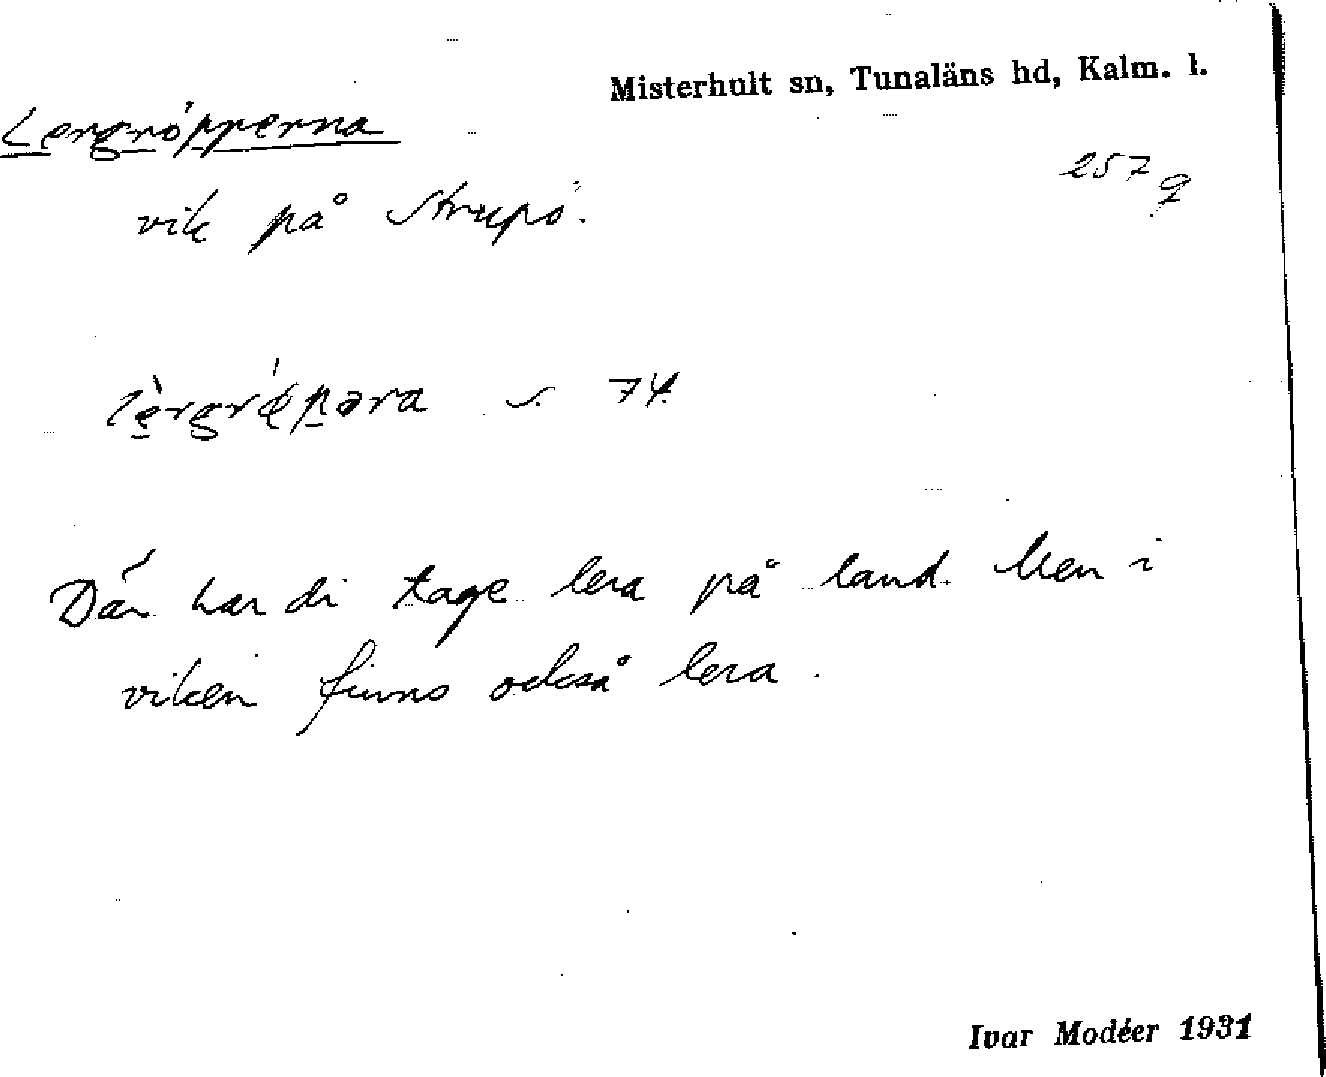 Misterhult sn, Tunaläns hd, Kalm. l.
Lergröpperna
257 q
vik på Strupö.
s. 74.
Där har di tage lera på land. Men i
viken finns också lera.
Ivar Modéer 1931